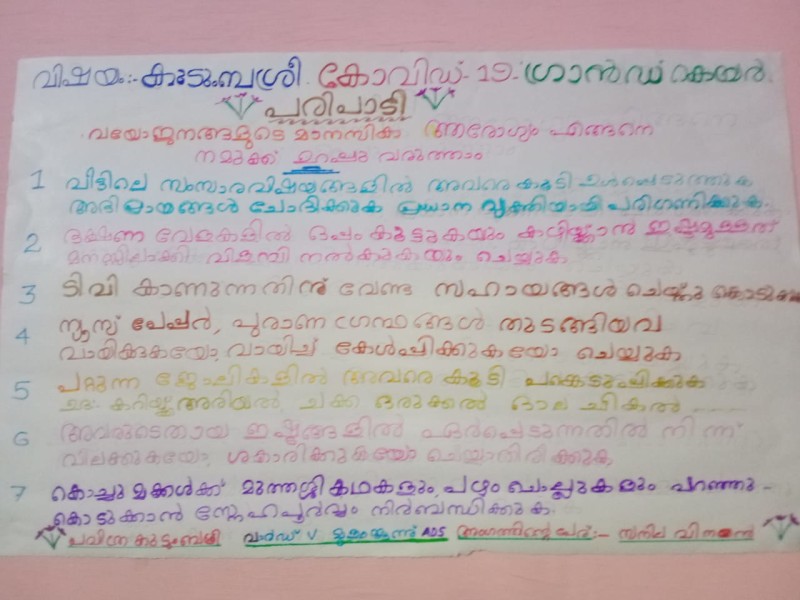 വിഷയം:- കുടുംബശ്രീ കോവിഡ്-19- ഗ്രാൻഡ് കെയർ.
പരിപാടി
വയോജനങ്ങളുടെ മാനസിക ആരോഗ്യം എങ്ങനെ
നമുക്ക് ഉറപ്പു വരുത്താം
1 വീട്ടിലെ സംസാരവിഷയങ്ങളിൽ അവരെ കൂടി ഉൾപ്പെടുത്തുക
അഭിപ്രായങ്ങൾ ചോദിക്കുക പ്രധാന വ്യക്തിയായി പരിഗണിക്കുക.
2 ഭക്ഷണ വേളകളിൽ ഒപ്പം കൂട്ടുകയും കഴിയ്ക്കാൻ ഇഷ്ടമുള്ളത്
മനസ്സിലാക്കി വിളമ്പി നൽകുകയും ചെയ്യുക.
3 ടിവി കാണുന്നതിന് വേണ്ട സഹായങ്ങൾ ചെയ്തു കൊടുക്കുക
4 ന്യൂസ് പേപ്പർ, പുരാണ ഗ്രന്ഥങ്ങൾ തുടങ്ങിയവ
വായിക്കുകയോ, വായിച്ച് കേൾപ്പിക്കുകയോ ചെയ്യുക
5 പറ്റുന്ന ജോലികളിൽ അവരെ കൂടി പങ്കെടുപ്പിക്കുക
ഉദാ: കറിയ്ക്ക് അരിയൽ, ചക്ക ഒരുക്കൽ
6 അവരുടെതായ ഇഷ്ടങ്ങളിൽ ഏർപ്പെടുന്നതിൽ നിന്ന്
വിലക്കുകയോ, ശകാരിക്കുകയോ ചെയ്യാതിരിക്കുക
7 കൊച്ചുമക്കൾക്ക് മുത്തശ്ശികഥകളും, പഴം ചൊല്ലുകളും പറഞ്ഞു-
കൊടുക്കാൻ സ്നേഹപൂർവ്വം നിർബന്ധിക്കുക.
പവിത്ര കുടുംബശ്രീ വാർഡ് V ADS അംഗത്തിന്റെ പേര്:-